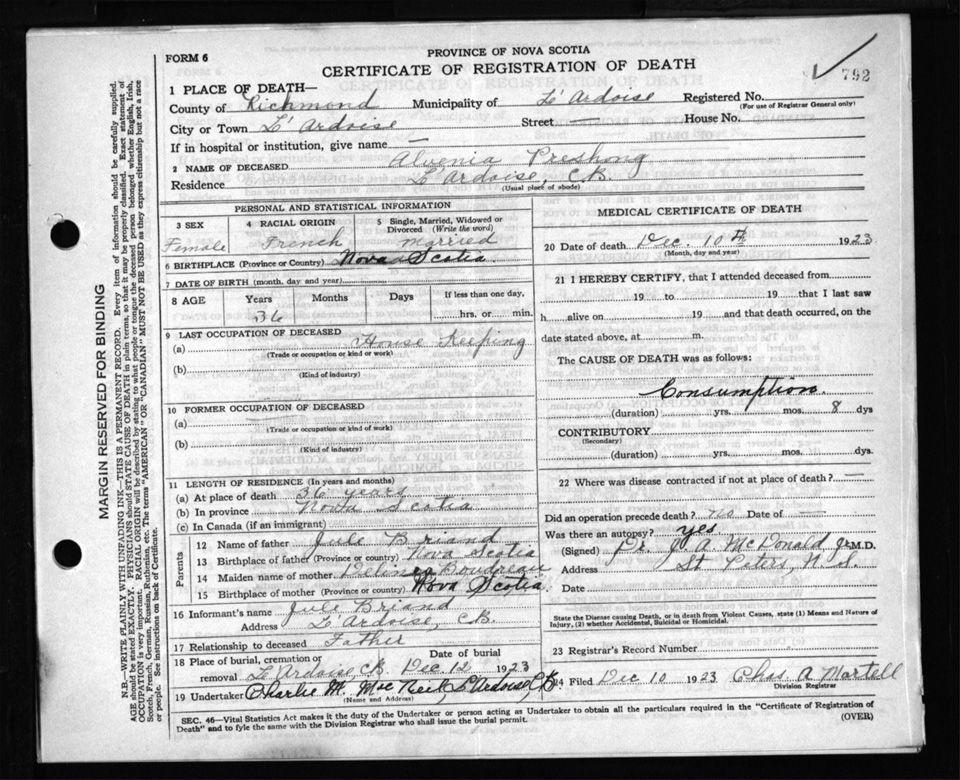 FORM 6
PROVINCE OF NOVA SCOTIA
CERTIFICATE OF REGISTRATION OF DEATH
792
1 PLACE OF DEATH—
County of Richmond Municipality of L'Ardoise Registered No.
(For use of Registrar General only)
City or Town L'Ardoise Street — House No.
If in hospital or institution, give name —
2 NAME OF DECEASED Alvenia Preshong
Residence L'Ardoise, C.B.
(Usual place of abode)
PERSONAL AND STATISTICAL INFORMATION
3 SEX 4 RACIAL ORIGIN 5 Single, Married, Widowed or Divorced (Write the word)
Female French Married
6 BIRTHPLACE (Province or Country) Nova Scotia.
7 DATE OF BIRTH (month, day and year)
8 AGE Years Months Days If less than one day,
36 hrs. or min.
9 LAST OCCUPATION OF DECEASED
(a) House Keeping
(Trade or occupation or kind or work)
(b)
(Kind of industry)
10 FORMER OCCUPATION OF DECEASED
(a)
(Trade or occupation or kind of work)
(b)
(Kind of industry)
11 LENGTH OF RESIDENCE (In years and months)
(a) At place of death 36 years
(b) In province Nova Scotia
(c) In Canada (if an immigrant)
Parents
12 Name of father Jule Briand
13 Birthplace of father (Province or country) Nova Scotia
14 Maiden name of mother Boudreau
15 Birthplace of mother (Province or country) Nova Scotia
16 Informant's name Jule Briand
Address L'Ardoise, C.B.
17 Relationship to deceased Father
18 Place of burial, cremation or removal Date of burial
L'Ardoise, C.B. Dec 12 1923
19 Undertaker Charlie M. Mac Neil L'Ardoise, C.B.
(Name and Address)
MEDICAL CERTIFICATE OF DEATH
20 Date of death Dec. 10th 1923
(Month, day and year)
21 I HEREBY CERTIFY, that I attended deceased from
19 to 19 that I last saw
h alive on 19 and that death occurred, on
date stated above, at m.
The CAUSE OF DEATH was as follows:
Consumption.
(duration) yrs. mos. 8 dys
CONTRIBUTORY
(Secondary)
(duration) yrs. mos. dys.
22 Where was disease contracted if not at place of death? —
Did an operation precede death? no Date of —
Was there an autopsy? yes
(Signed) Dr. J. A. McDonald Jr. M.D.
Address St. Peters, N.S.
Date
State the Disease causing Death, or in death from Violent Causes, state (1) Means and Nature of Injury, (2) whether Accidental, Suicidal or Homicidal.
23 Registrar's Record Number
24 Filed Dec 10 1923 Chas A Martell
Division Registrar
SEC. 46—Vital Statistics Act makes it the duty of the Undertaker or person acting as Undertaker to obtain all the particulars required in the "Certificate of Registration of
Death" and to fyle the same with the Division Registrar who shall issue the burial permit.
(OVER)
MARGIN RESERVED FOR BINDING
N.B. WRITE PLAINLY WITH UNFADING INK—THIS IS A PERMANENT RECORD. Every item of information should be carefully supplied.
AGE should be stated EXACTLY. PHYSICIANS should STATE CAUSE OF DEATH in plain terms, so that it may be properly classified. Exact statement of
OCCUPATION is very important. RACIAL ORIGIN will be described by stating to what people or tongue the deceased person belonged whether English, Irish,
Scotch, French, German, Russian, Ruthenian, etc. The terms "AMERICAN" OR "CANADIAN" MUST NOT BE USED as they express citizenship but not a race
or people. See instructions on back of Certificate.